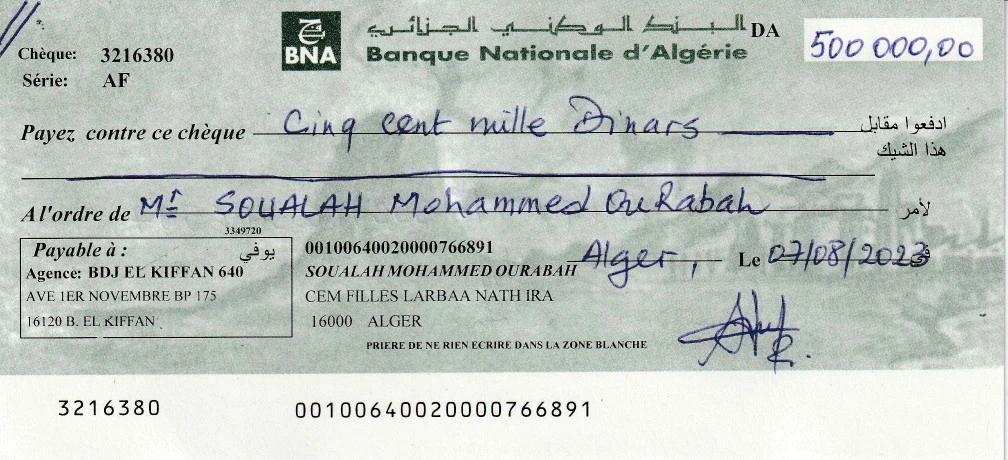 Chèque: 3216380
Série: AF
BNA
البنك الوطني الجزائري
Banque Nationale d'Algérie
DA
500 000,00
Payez contre ce chèque Cinq cent mille Dinars ادفعوا مقابل
هذا الشيك
A l'ordre de Mr SOUALAH Mohammed OuRabah لأمر
3349720
Payable à : يوفي
Agence: BDJ EL KIFFAN 640
AVE 1ER NOVEMBRE BP 175
16120 B. EL KIFFAN
00100640020000766891
SOUALAH MOHAMMED OURABAH
CEM FILLES LARBAA NATH IRA
16000 ALGER
Alger, Le 07/08/2023 في
PRIERE DE NE RIEN ECRIRE DANS LA ZONE BLANCHE
3216380 00100640020000766891